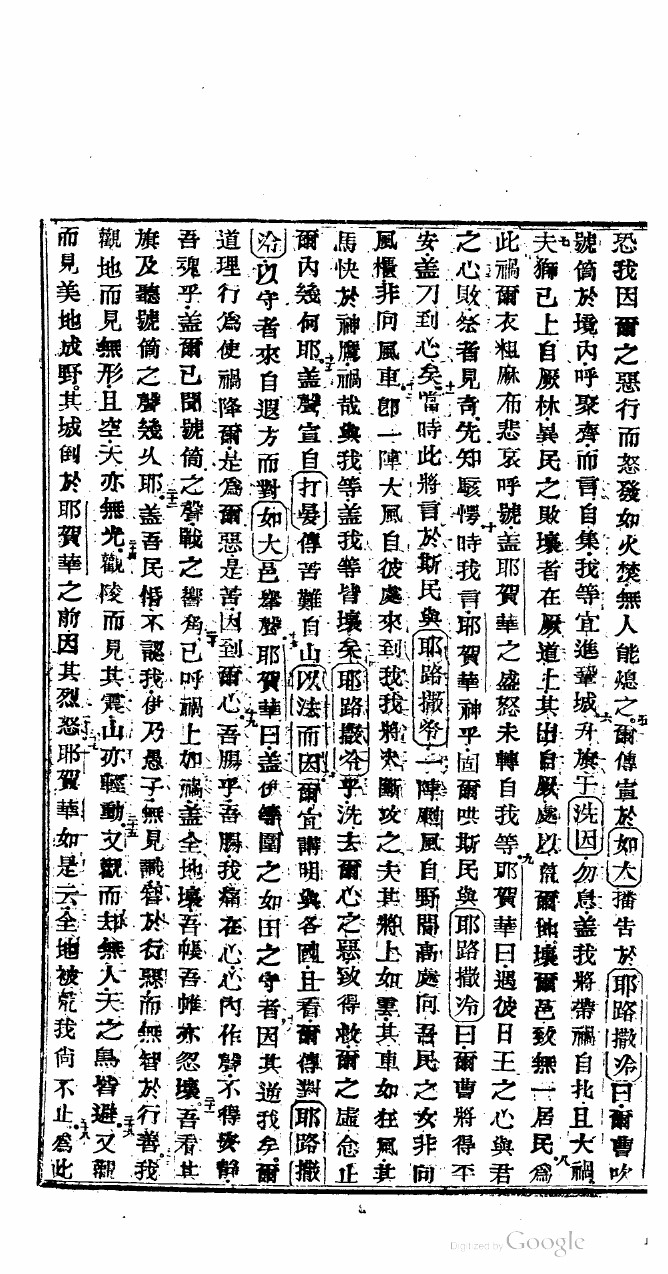 恐我因爾之惡行而怒發如火焚無人能熄之五爾傳宣於如大播告於耶路撒冷曰爾曹吹
號筒於境內呼聚齊而言自集我等宜進鞏城六升旗于洗因勿息蓋我將帶禍自北且大禍
七夫獅已上自厥林異民之敗壞者在厥道上其出自厥處以荒爾地壞爾邑致無一居民八為
此禍爾衣粗麻布悲哀呼號蓋耶賀華之盛怒未轉自我等九耶賀華曰遇彼日王之心與君
之心敗祭者見奇先知駭愕時十我言耶賀華神乎固爾哄斯民與耶路撒冷曰爾曹將得平
安蓋刀到心矣十一當時此將言於斯民與耶路撒冷一陣颺風自野間高處向吾民之女非向
風櫃非向風車十二即一陣大風自彼處來到我我將來斷攻之夫其將上如雲其車如狂風其
馬快於神鷹禍哉與我等蓋我等皆壞矣耶路撒冷乎洗去爾心之惡致得救爾之虛念止
爾內幾何耶十五蓋聲宣自打晏傳苦難自山以法而因爾宜講明與各國且看爾傳對耶路撒
冷以守者來自遐方而對如大邑舉聲耶賀華曰蓋伊等圍之如田之守者因其逆我矣爾
道理行為使禍降爾是為爾惡是苦因到爾心十九吾腸乎吾腸我痛在心心內作聲不得安靜
吾魂乎蓋爾已聞號筒之聲戰之響角二十已呼禍上加禍蓋全地壞吾帳吾帷亦忽壞二十一吾看其
旗及聽號筒之聲幾久耶二十二蓋吾民愚不認我伊乃愚子無見識智於行惡而無智於行善我
觀地而見無形且空天亦無光二十四觀陵而見其震山亦輕動二十五又觀而却無人天之鳥皆避二十六又觀
而見美地成野其城倒於耶賀華之前因其烈怒二十七耶賀華如是云全地被荒我尚不止二十八為此
Digitized by Google